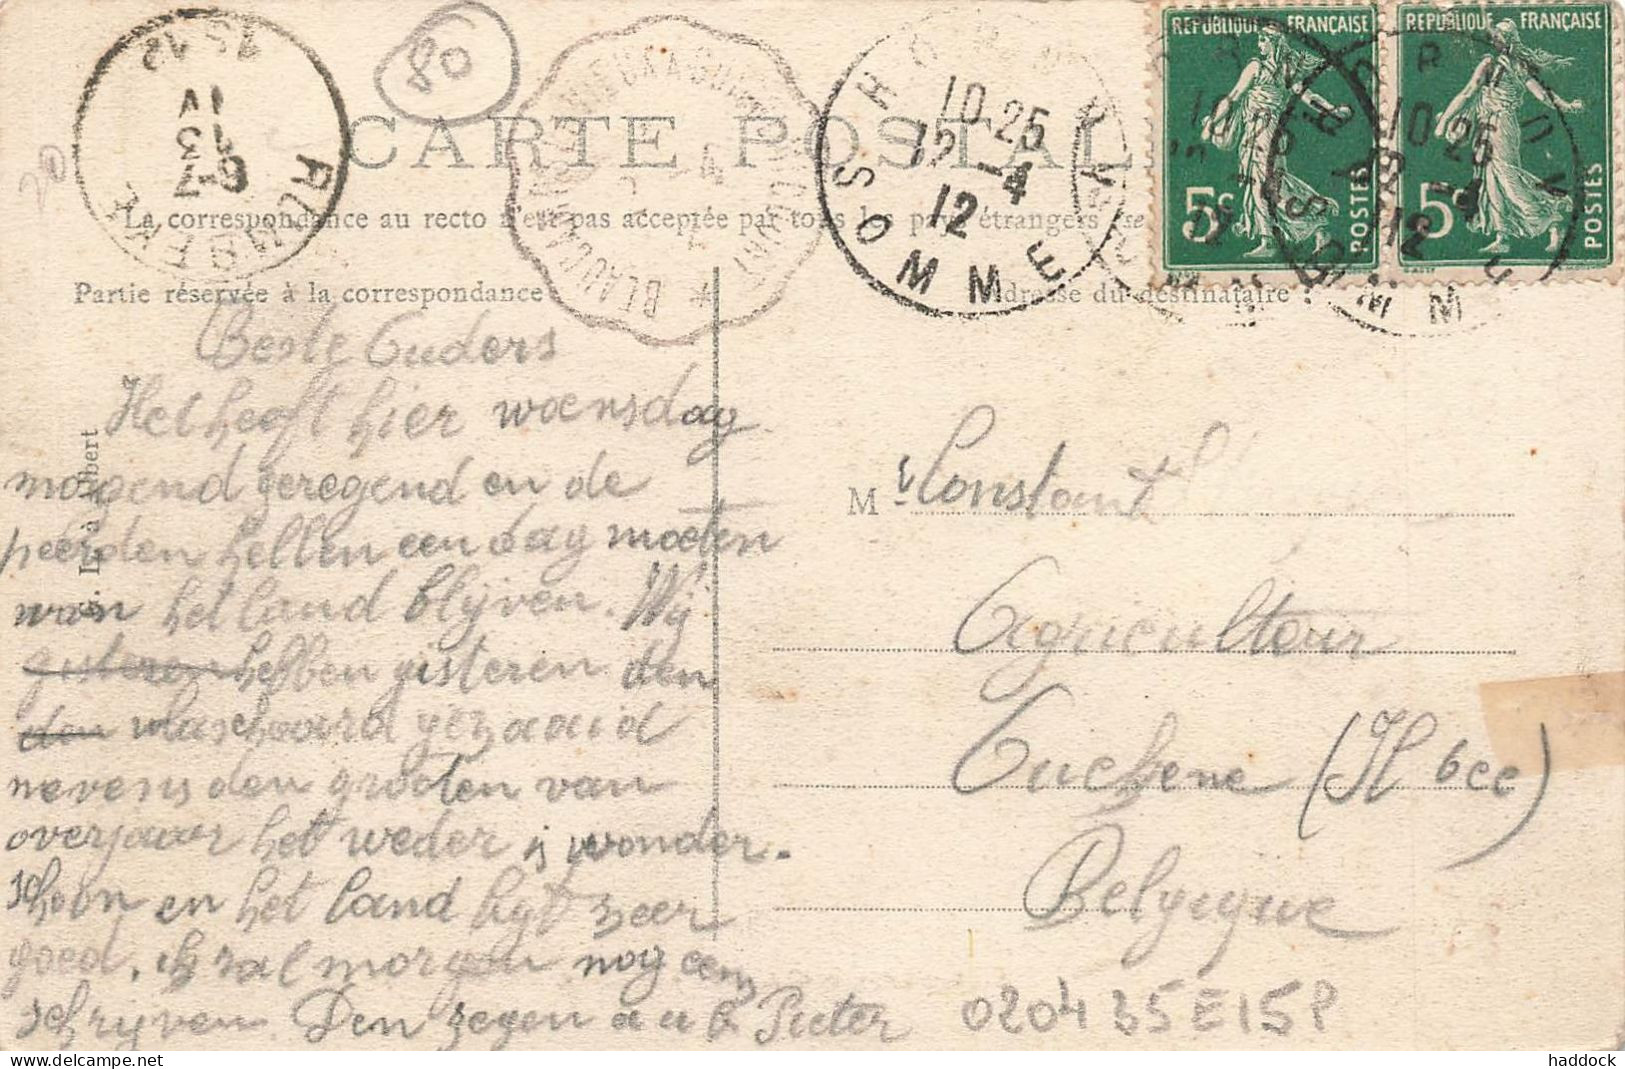 CARTE POSTALE
La correspondance au recto n'est pas acceptée par tous les pays étrangers (se
Partie réservée à la correspondance
Adresse du destinataire
REPUBLIQUE FRANÇAISE
5c POSTES
REPUBLIQUE FRANÇAISE
5c POSTES
10 25
12 - 4
12
SOMME
80
20
Beste Ouders
Het heeft hier woensdag
morgend geregend en de
peerden hellen een dag moeten
van het land blijven. Wij
gisteren hebben gisteren den
den vlaschaard gezaaid
nevens den grooten van
overjaar het weder is wonder-
schoon en het land ligt zeer
goed, ik zal morgen nog eens
schrijven. Den zegen a u b Pieter
Mr Constant
Agriculteur
Tuchene (
Belgique
020435E15P
haddock